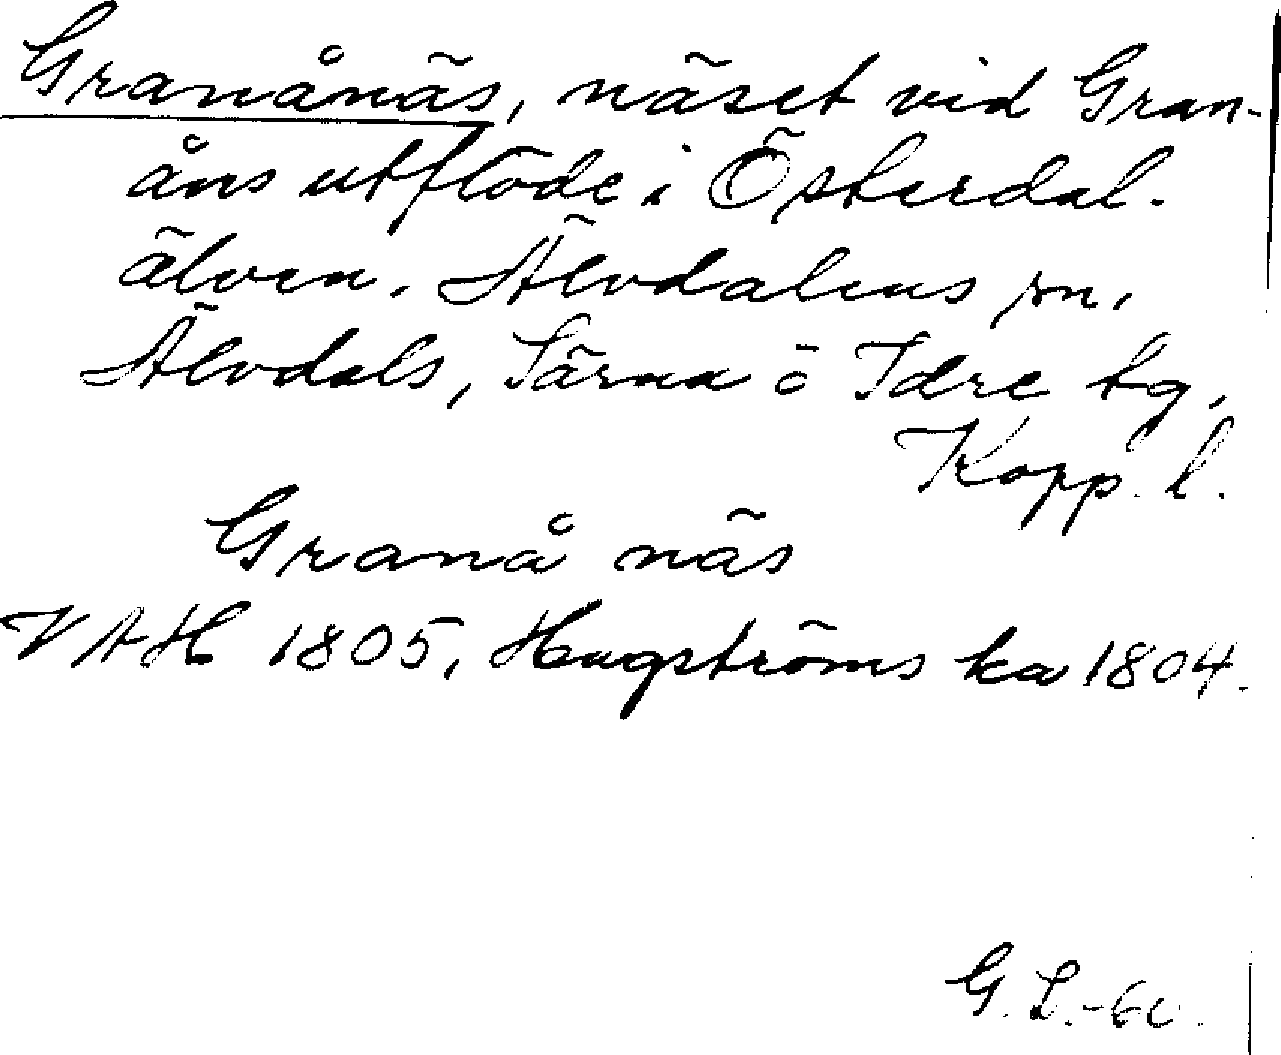 Granånäs, näset vid Gran-
åns utflöde i Österdal-
älven. Älvdalens sn,
Älvdals, Särna o Idre tg,
Kopp. l.
Granå näs
VAH 1805, Hagströms ka 1804.
G. L.-60.